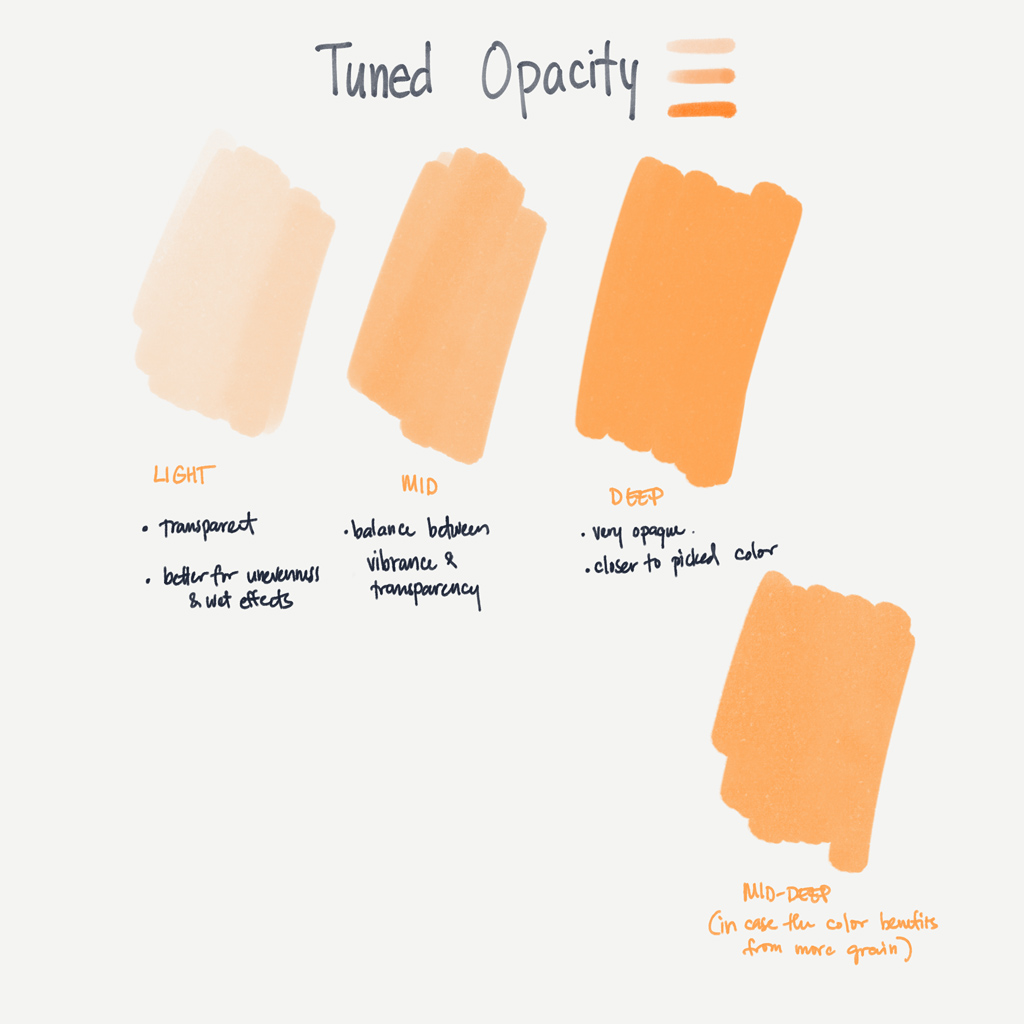 Tuned Opacity
LIGHT
• transparent
• better for unevenness
& wet effects
MID
• balance between
vibrance &
transparency
DEEP
• very opaque.
• closer to picked color
MID-DEEP
(in case the color benefits
from more grain)